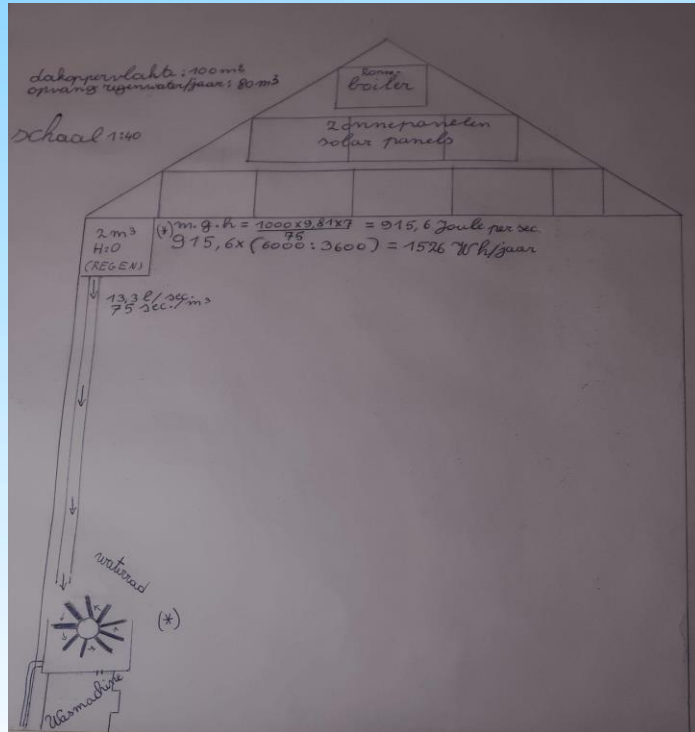 dakoppervlakte: 100 m²
opvang regenwater/jaar: 80 m³
schaal 1:40
boiler
zonnepanelen
solar panels
2 m³
H2O
(REGEN)
(*) m.g.h = 1000x9,81x7 / 75 = 915,6 Joule per sec.
915,6 x (6000:3600) = 1526 Wh/jaar
13,3 l/sec.
75 sec./m³
waterrad
(*)
Wasmachine